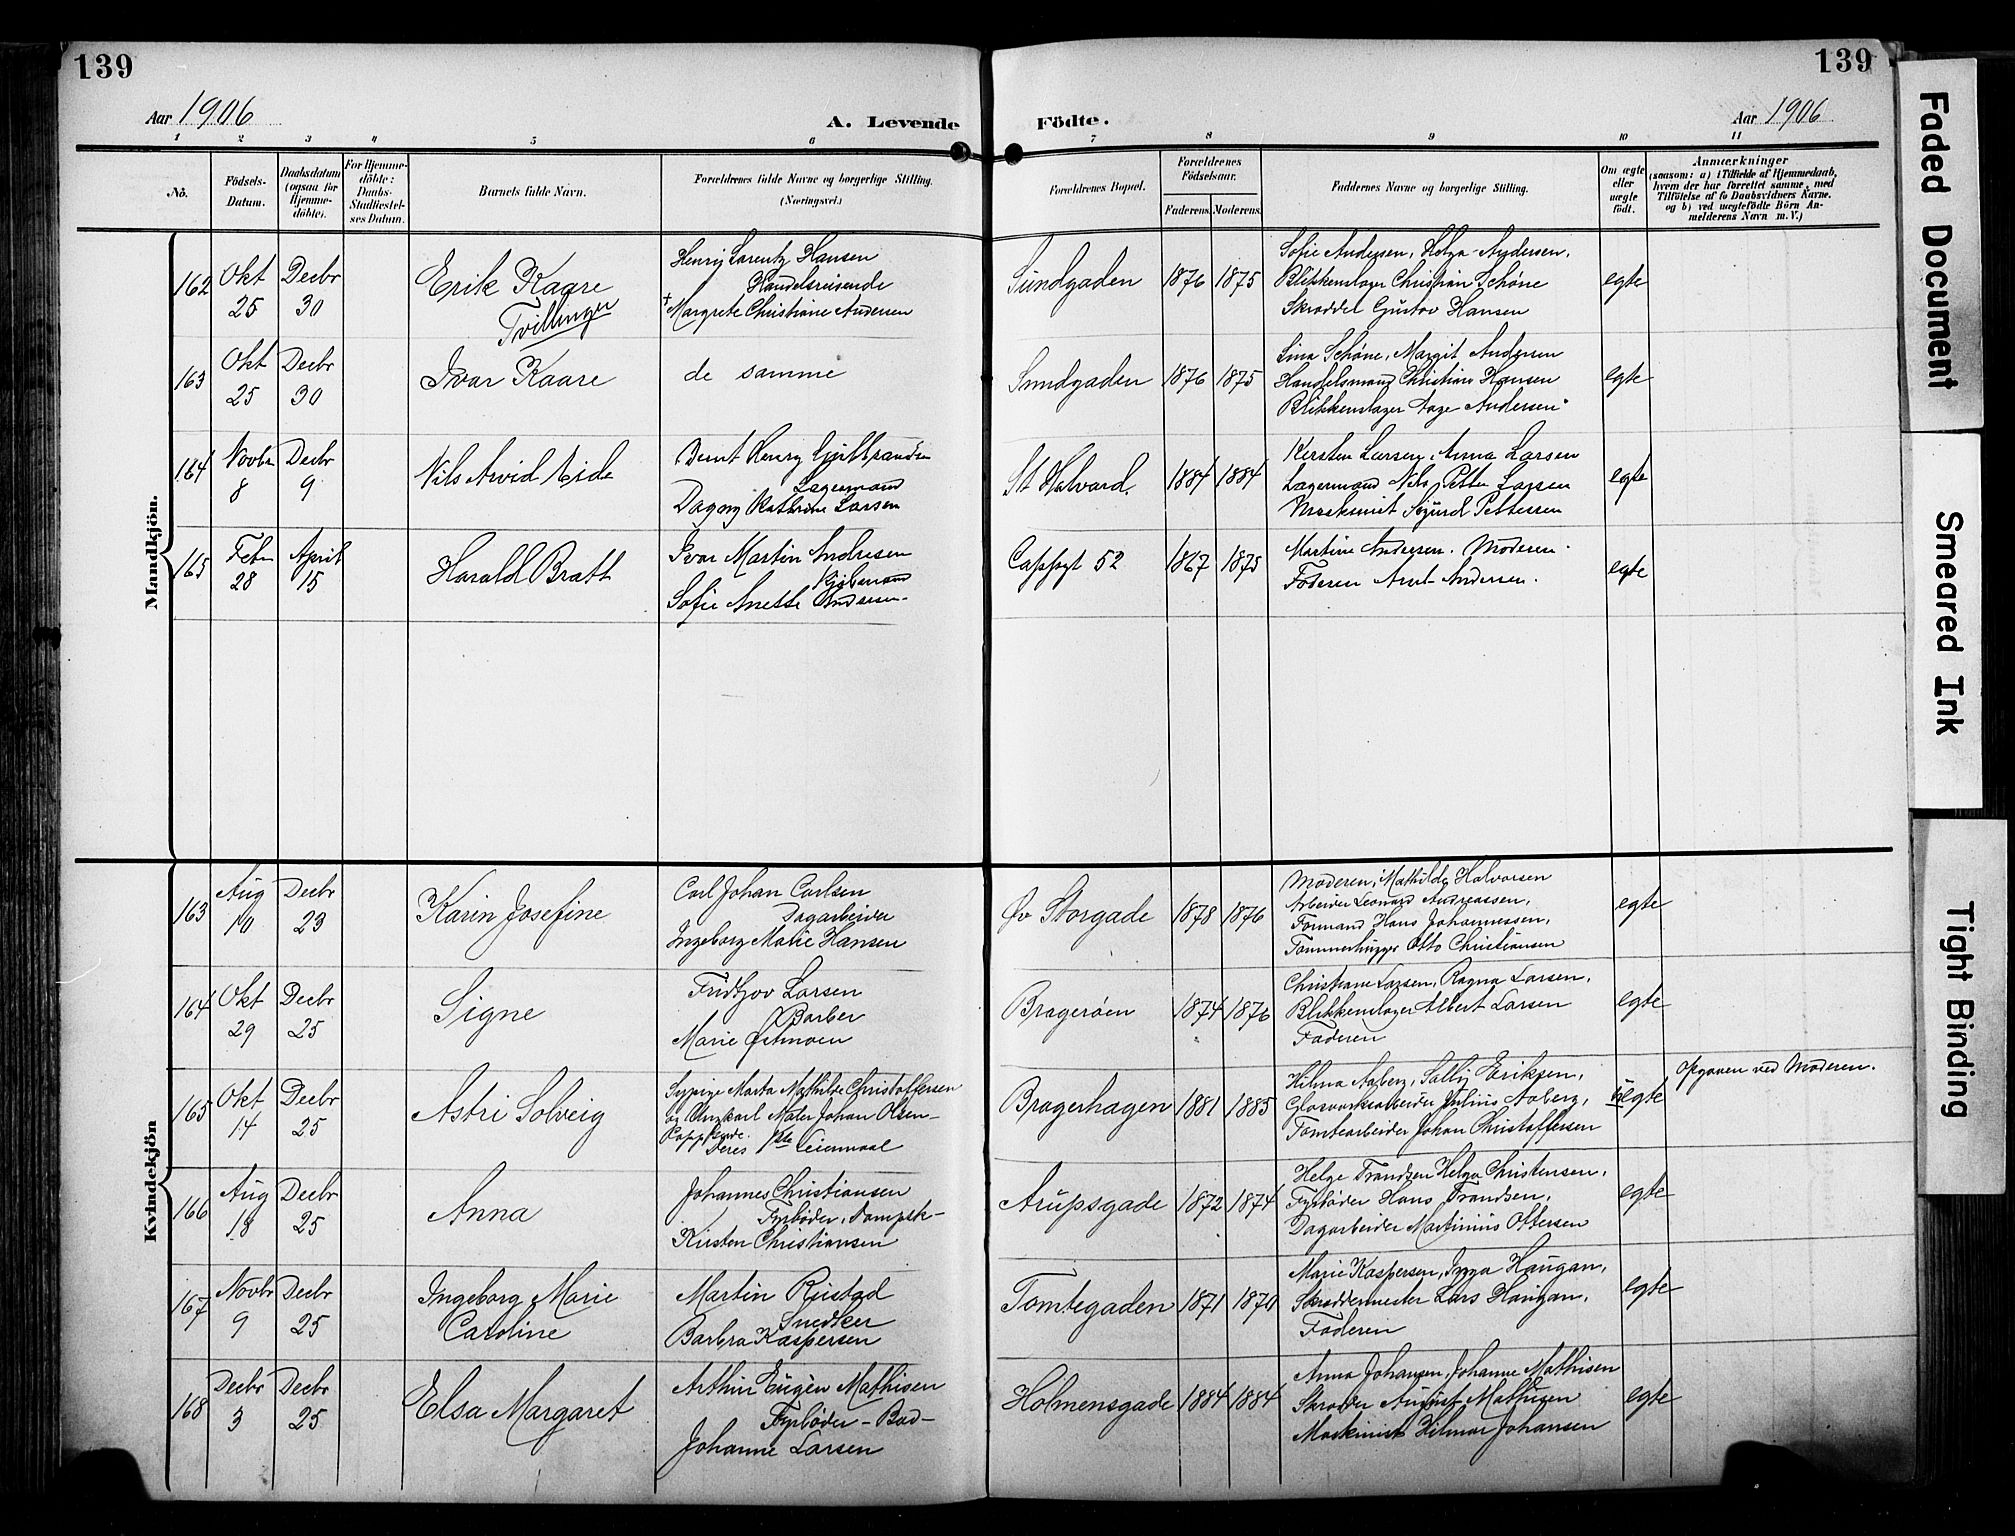 139
139
Aar 1906
A. Levende
Födte.
Aar 1906
1 2 3 4 5 6 7 8 9 10 11
No.
Födsels-
Datum.
Daabsdatum
(ogsaa for
Hjemme-
döbte).
For Hjemme-
döbte:
Daabs-
Stadfæstel-
ses Datum.
Barnets fulde Navn.
Forældrenes fulde Navne og borgerlige Stilling.
(Næringsvei.)
Forældrenes Bopæl.
Forældrenes
Födselsaar.
Faderens. Moderens.
Faddernes Navne og borgerlige Stilling.
Om ægte
eller
uægte
födt.
Anmærkninger
(saasom: a) i Tilfælde af Hjemmedaab,
hvem der har forrettet samme, med
Tilföielse af to Daabsvidners Navne.
og b) ved uægtefödte Börn An-
melderens Navn m. V.)
Mandkjön.
162
Okt
25
Decbr
30
Erik Kaare
Tvillinger
Henrij Lorentz Hansen
Handelsreisende
+ Margrete Christiane Andersen
Sundgaden
1876
1875
Sofie Andersen, Helga Andersen,
Blikkenslager Christian Schöne
Skrædder Gustav Hansen
egte
163
Okt
25
Decbr
30
Ivar Kaare
de samme
Sundgaden
1876
1875
Lina Schöne, Margit Andersen
Handelsmand Christian Hansen
Blikkenslager Aage Andersen
egte
164
Novbr
8
Decbr
9
Nils Arvid Eide
Bernt Henry
Lagermand
Dagny Kathrine Larsen
St Halvard.
1884
1884
Kirsten Larsen, Anna Larsen
Lagermand Nils Petter Larsen
Maskinist Sigurd Pettersen
egte
165
Febr
28
April
15
Harald Bratt
Ivar Martin Andresen
Kjöbmand
Sofie Anette Andersen
52
1867
1875
Martine Andersen. Moderen.
Faderen Arnt Andersen.
egte
Kvindekjön
163
Aug
10
Decbr
23
Karin Josefine
Carl Johan Carlsen
Dagarbeider
Ingeborg Marie Hansen
Øv Storgade
1878
1876
Moderen, Mathilde Halvorsen
Arbeider Leonard Andreassen,
Formand Hans Johannessen,
Tömmerhugger Otto Christiansen
egte
164
Okt
29
Decbr
25
Signe
Fridtjov Larsen
Barber
Marie Østmoen
Bragerøen
1874
1876
Christiane Larsen, Ragna Larsen,
Blikkenslager Albert Larsen
Faderen
egte
165
Okt
14
Decbr
25
Astri Solveig
Sypige Marta Mathilde Christoffersen
og Ungkarl Maler Johan Olsen
Deres 1ste Leiermaal
Bragerhagen
1881
1885
Hilma Aaberg, Sally Eriksen,
Glasværksarbeider Julius Aaberg,
Tomtearbeider Johan Christoffersen
uegte
Opgaven ved Moderen.
166
Aug
18
Decbr
25
Anna
Johannes Christiansen
Fyrböder, Dampsk-
Kirsten Christiansen
Arupsgade
1872
1874
Helge Trandsen Helga Christensen,
Fyrböder Hans Trandsen,
Dagarbeider Martinius Ottersen
egte
167
Novbr
9
Decbr
25
Ingeborg Marie
Caroline
Martin Rustad
Snedker
Barbra Kaspersen
Tomtegaden
1871
1870
Marie Kaspersen, Inga Haugan,
Skræddermester Lars Haugan,
Faderen
egte
168
Decbr
3
Decbr
25
Elsa Margaret
Arthur Eugèn Mathisen
Fyrböder - Bad-
Johanne Larsen
Holmensgade
1884
1884
Anna Johansen, Johanne Mathisen
Skrædder August Mathisen
Maskinist Hilmar Johansen
egte
Faded Document
Smeared Ink
Tight Binding